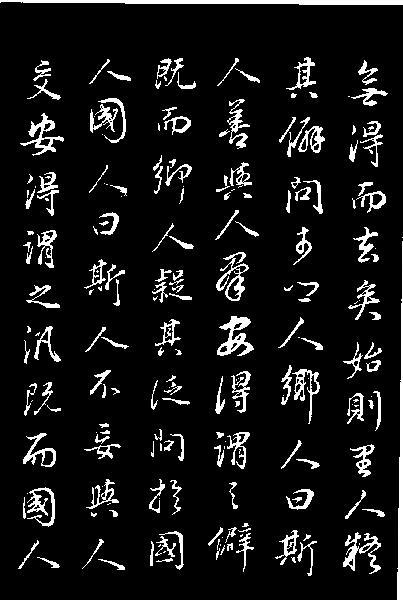 無得而去矣始則里人疑
其僻問于鄉人鄉人曰斯
人善與人羣安得謂之僻
既而鄉人疑其泛問於國
人國人曰斯人不妄與人
交安得謂之汎既而國人